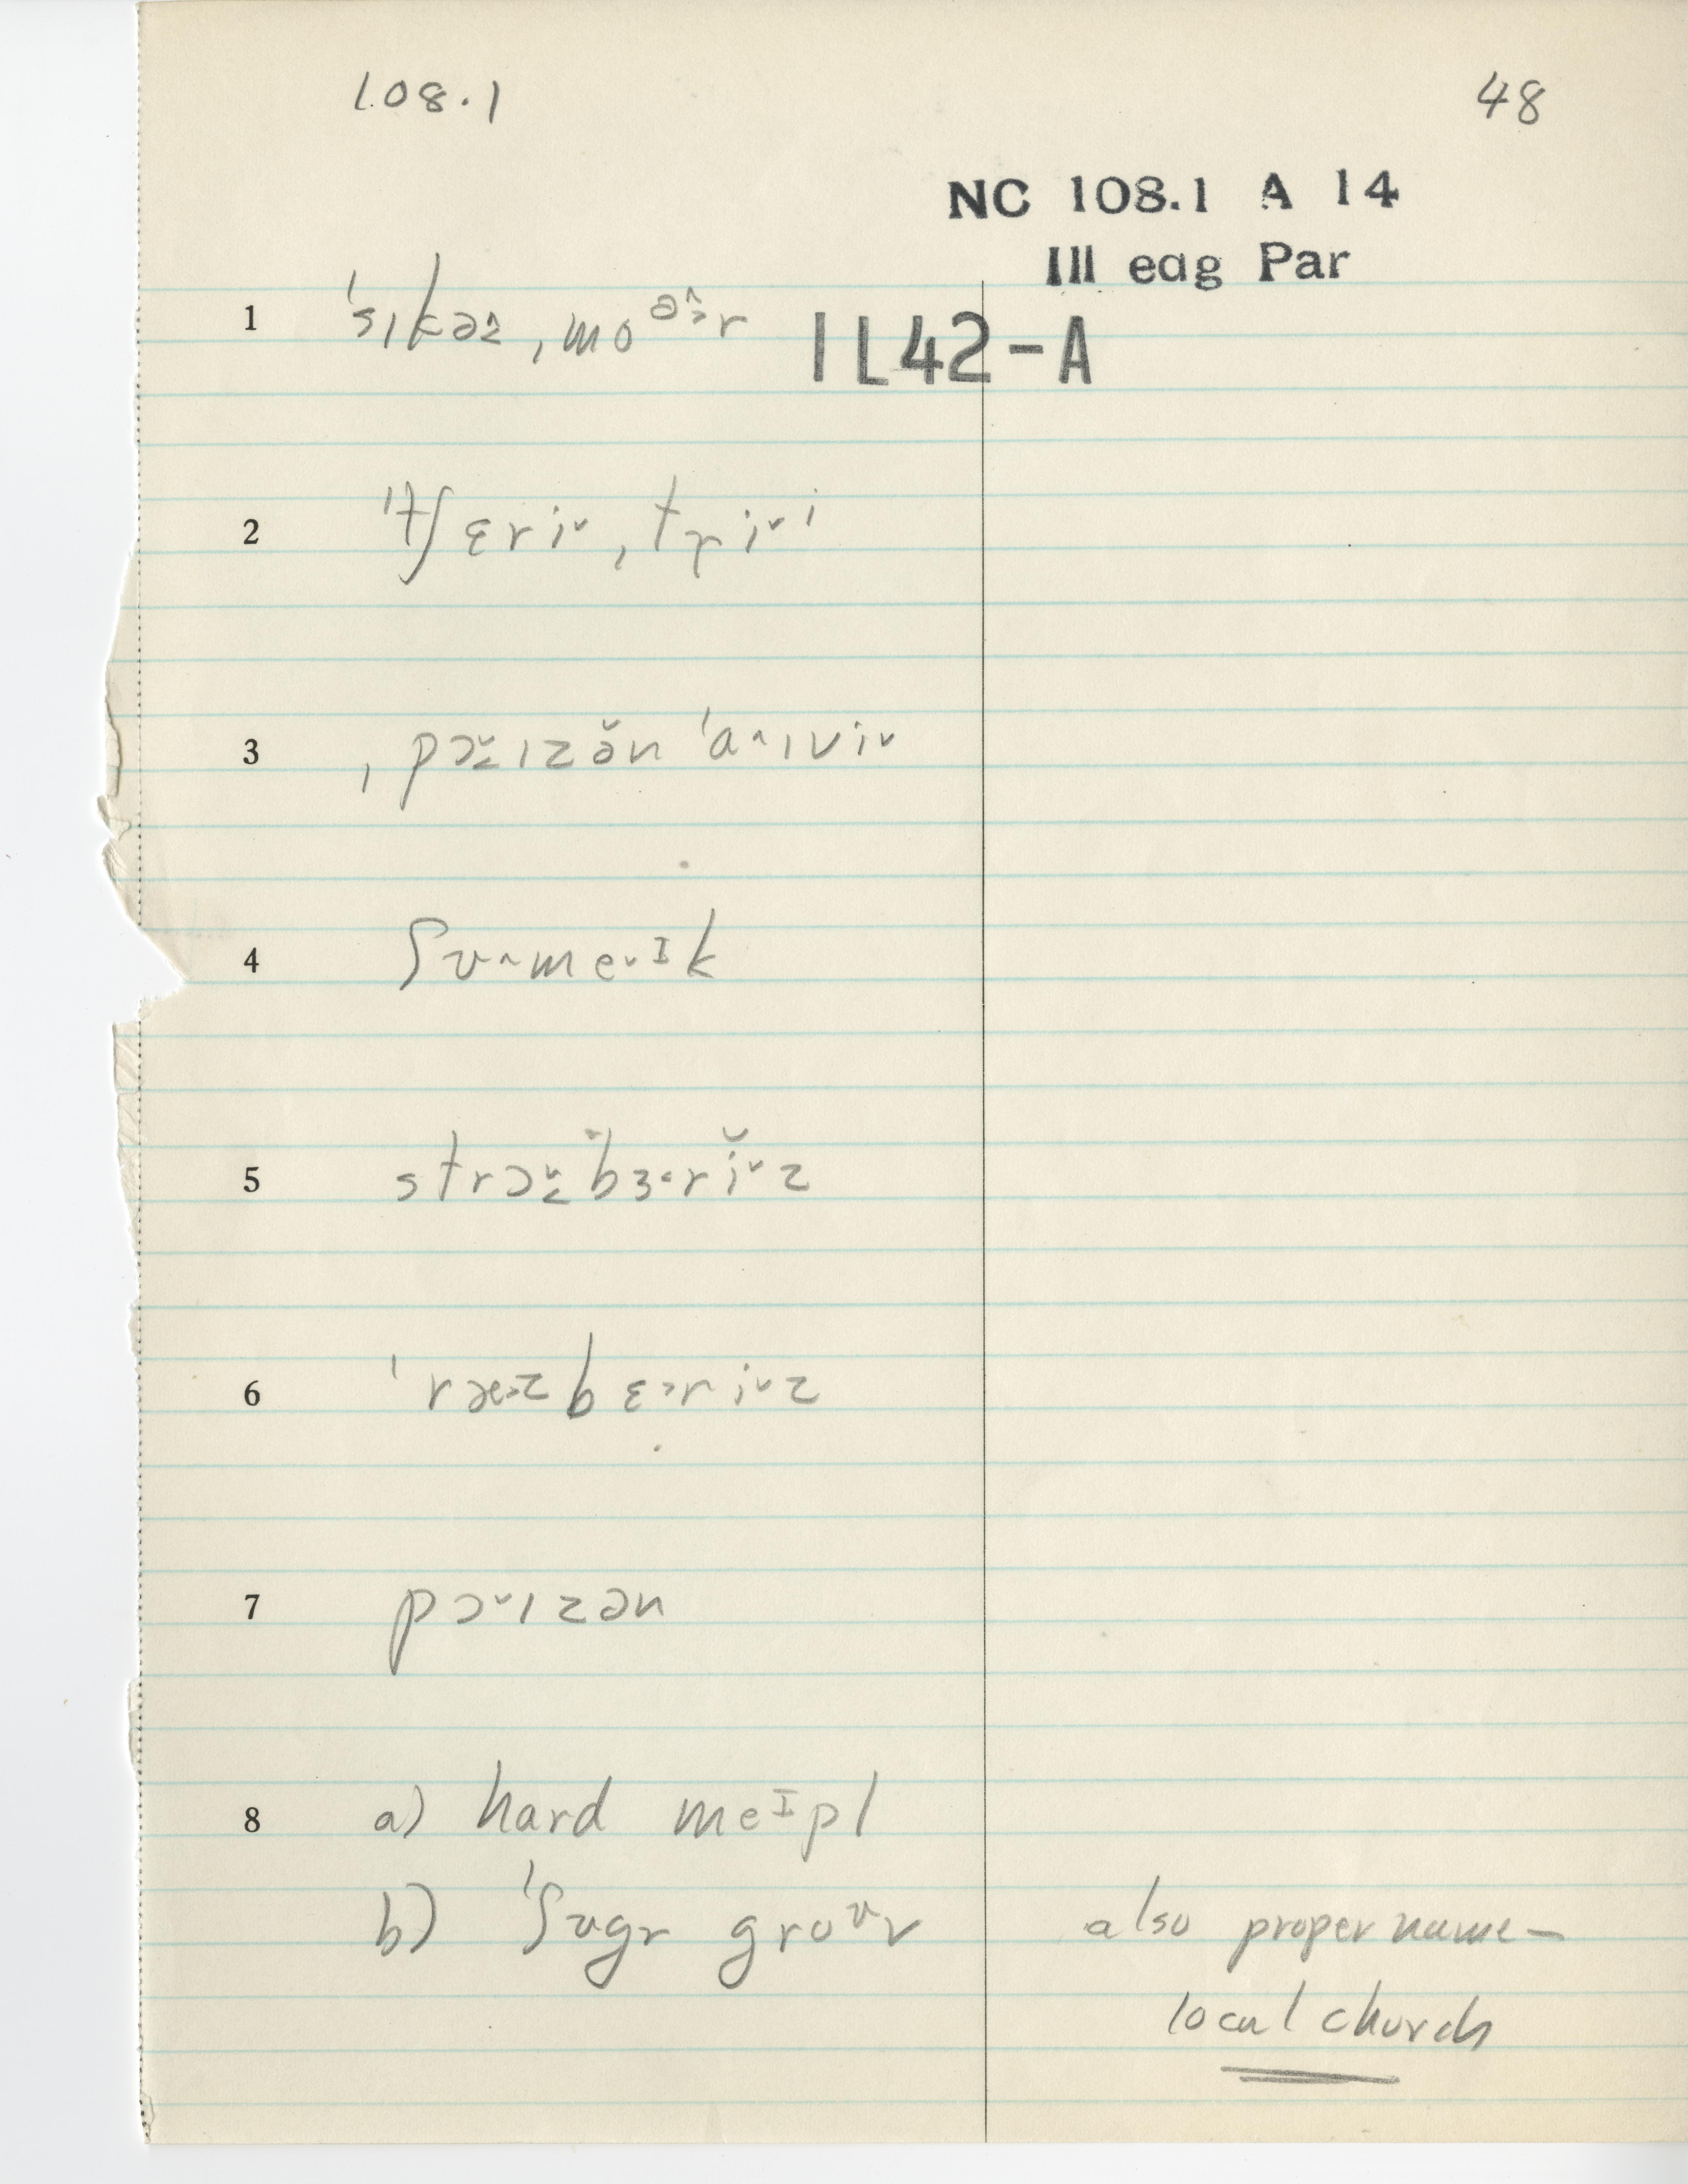 108.1 48
NC 108.1 A 14
Ill eag Par
IL42-A
1 ˈsɪkə, moə˃r
2 ˈtʃɛri˅, tri˅i
3 ˌpɔ˅ɪzə̆n ˈa˄ɪvi˅
4 ʃʊ˄me˅ɪk
5 strɔ˅bɜ˂rĭ˅z
6 ˈræ˃zbɛ˃ri˅z
7 pɔ˅ɪzən
8 a) hard meɪpl
b) ˈʃʊgr groʊv also proper name—
local church